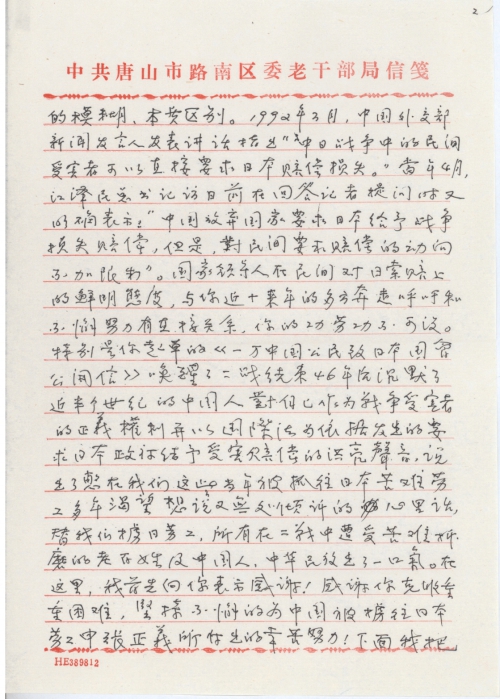 2
中共唐山市路南区委老干部局信笺
的模糊、本质区别。1992年3月,中国外交部
新闻发言人发表讲话指出"中日战争中的民间
受害者可以直接要求日本赔偿损失。"当年4月,
江泽民总书记访日前在回答记者提问时又
的确表示:"中国放弃国家要求日本给予战争
损失赔偿,但是,對民间要求赔偿的动向
不加限制"。国家领导人在民间对日索赔上
的鲜明態度,与你近十来年的多方奔走呼吁和
不懈努力有直接关系,你的功劳功不可没。
特别是你起草的《一万中国公民致日本国会
公開信》喚醒了二战结束46年后沉默了
近半个世纪的中国人對自己作为戰争受害者
的正義權利并以国際法为依据发出的要
求日本政府给予受害赔偿的洪亮聲音,说
出了憋在我们这些当年被抓往日本苦难劳
工多年渴望想说又無处倾诉的心里话,
替我们擄日劳工,所有在二戰中遭受苦难折
磨的老百姓及中国人,中华民族出了一口氣。在
这里,我首先向你表示感谢!感谢你克服重
重困难,堅持不懈的为中国被擄往日本
劳工申張正義所付出的辛苦努力!下面我把
HE389812